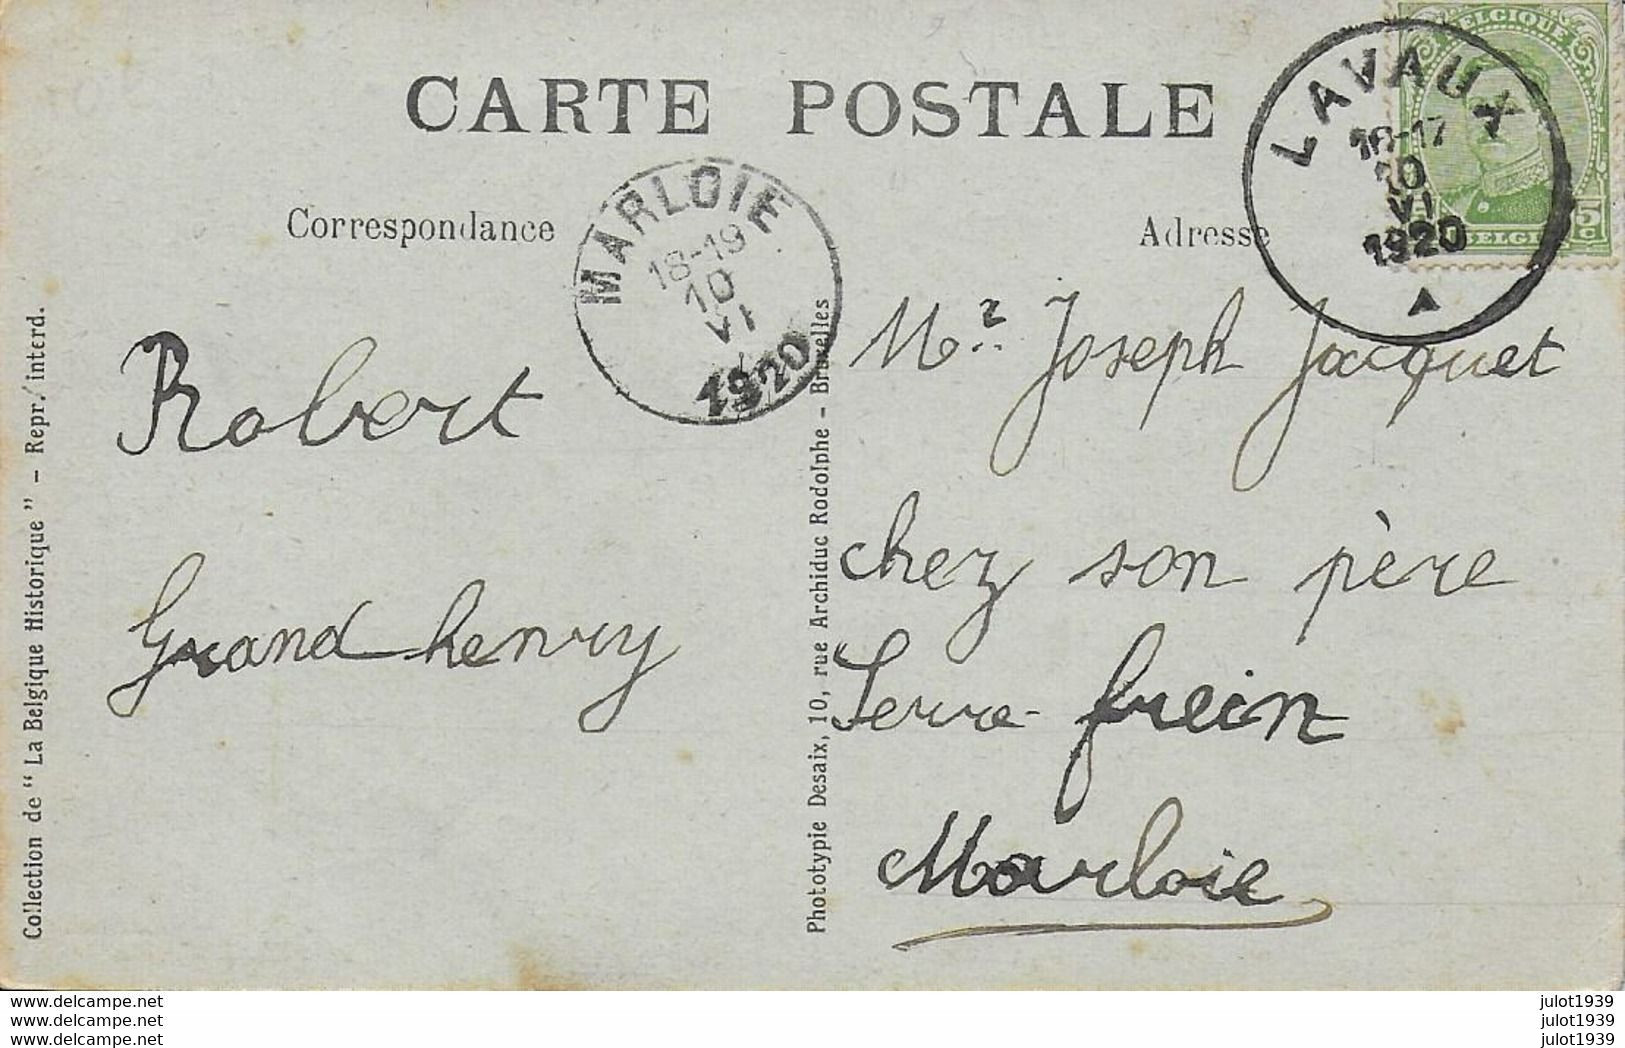 CARTE POSTALE
Correspondance
Adresse
BELGIQUE
5
c
LAVAUX
16-17
10
VI
1920
MARLOIE
18-19
10
VI
1920
Robert
Grandhenry
Mr. Joseph Jacquet
chez son père
Serre-frein
Marloie
Collection de "La Belgique Historique" - Repr. interd.
Phototypie Desaix, 10, rue Archiduc Rodolphe - Bruxelles
www.delcampe.net
www.delcampe.net
www.delcampe.net
julot1939
julot1939
julot1939